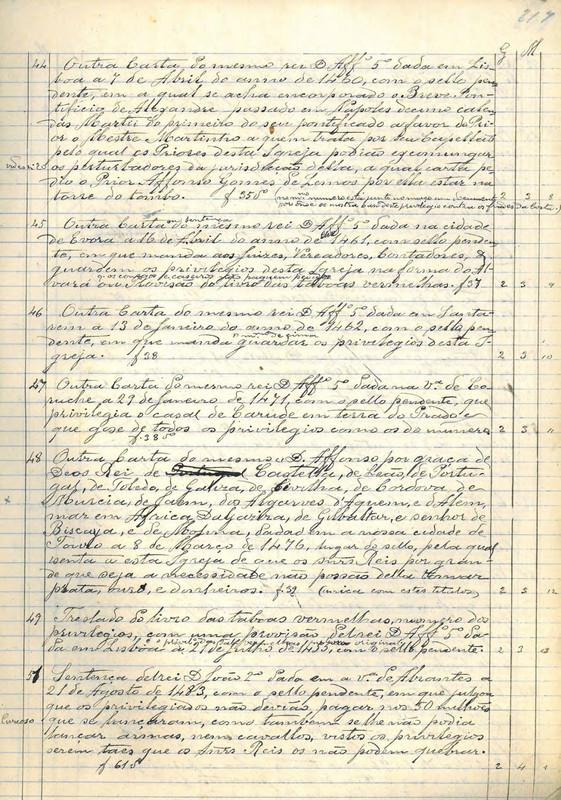 217
G M
44 Outra Carta do mesmo rei D. Affº 5º dada em Lis-
boa a 7 de Abril do anno de 1460, com o sello pen-
dente, em a qual se acha encorporado o Breve Pon-
tificio de Alexandre passado em Napoles decimo calen-
das Martii do primeiro do seu pontificado a favor do Pri-
or o Mestre Martinho a quem trata por seu Capellão
pelo qual os Priores desta Igreja podião excomungar
os perturbadores da jurisdicção della, a qual carta pe-
dio o Prior Affonso Gomes de Lemos por esta estar na
torre do tombo. f 35 5º
2 3 8
45 Outra Carta ou sentença do mesmo rei D. Affº 5º dada na cidade
de Evora a 16 de Abril do anno de 1461, com sello penden-
te, em que manda aos Juizes, Vereadores, Contadores, &
guardem os privilegios desta Igreja na forma do Al-
vará ou Provisão do livro das taboas vermelhas. f 37 2 3 9
46 Outra Carta do mesmo rei D. Affº 5º dada em Santa-
rem a 13 de Janeiro do anno de 1462, com o sello pen-
dente, em que manda guardar os privilegios desta I-
greja. f 38 2 3 10
47 Outra Carta do mesmo rei D. Affº 5º dada na vª de Co-
ruche, a 29 de Janeiro de 1471, com o sello pendente, que
privilegia o casal de Carude em terra do Prado e
que gose de todos os privilegios como os do numero
f. 38 5º 2 3 11
48 Outra Carta do mesmo D. Affonso por graça de
Deos Rei de Castella, de Leão, de Portu-
gal, de Toledo, de Galiza, de Sevilha, de Cordova de
Murcia, de Jaem, dos Algarves d'Aquem, e d'Alem,
mar em Africa, Daljazira, de Gibaltar, e senhor de
Biscaya, e de Molina, dada em a nossa cidade de
Touro a 8 de Março de 1476, lugar do sello, pela qual
isenta a esta Igreja de que os Snrs Reis por gran-
de que seja a necessidade não possão della tomar
prata, ouro, e dinheiros. f 39 (unica com estes titulos) 2 3 12
49 Treslado do livro das taboas vermelhas, numero dos
privilegios, com uma provisão delrei D. Affº 5º da-
da em Lisboa a 27 de Julho de 1455, com o sello pendente. 2 3 13
51 Sentença delrei D. João 2º dada em a vª de Abrantes a
21 de Agosto de 1483, com o sello pendente, em que julgou
que os privilegiados não devião, pagar nos 50 milhões
Curioso que se lançaram, como tambem se lhe não podia
lançar armas, nem cavallos, vistos os privilegios
serem taes que os Snrs Reis os não podem quebrar.
f 61 5º 2 4 1